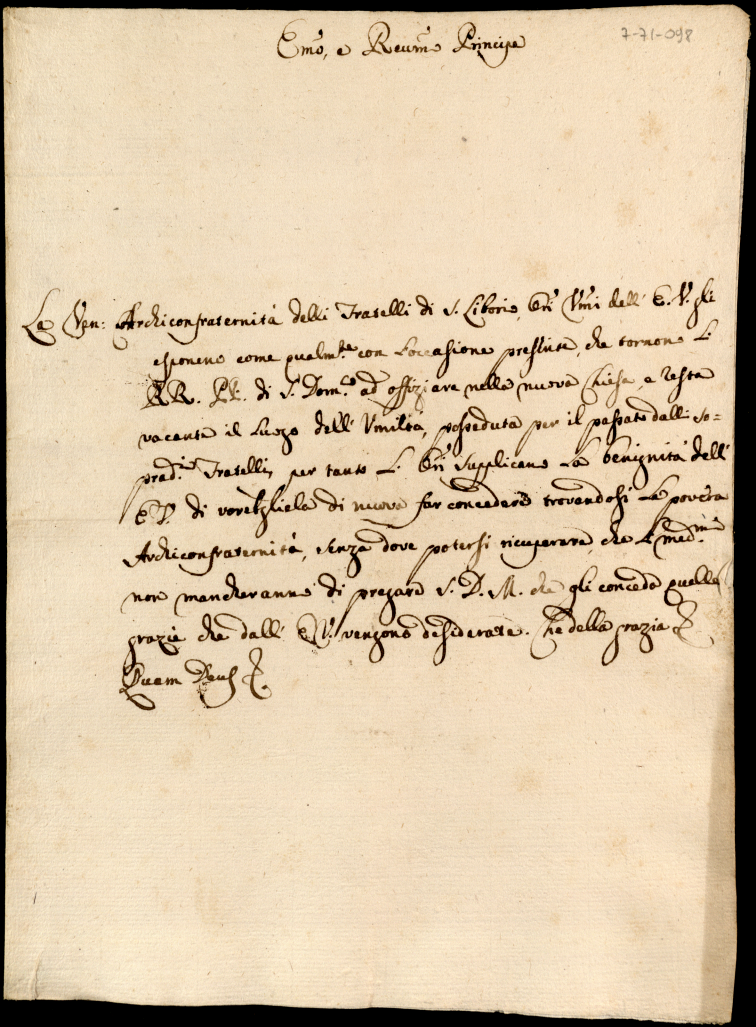 7-71-098
Emo, e Reumo Principe
La Ven: Archiconfraternità delli Fratelli di S. Liborio, Ori Umi dell' E.V. gli
esponeno come qualmte con l'occasione presente, che tornono l.
RR. PP. di S. Domco ad offiziare nella nuova Chiesa, e resta
vacante il Luogo dell' Umiltà, posseduta per il passato dalli so=
pradi Fratelli, per tanto l. Ori Supplicano la benignità dell'
E.V. di di nuovo far concedere trovandosi la povera
Archiconfraternità, senza dove potersi ricuperare, che l. medmi
non mancheranno di pregare S. D. M. che gli conceda quelle
grazie che dall' E.V. vengono desiderate. Che della grazia &
Quam Deus &